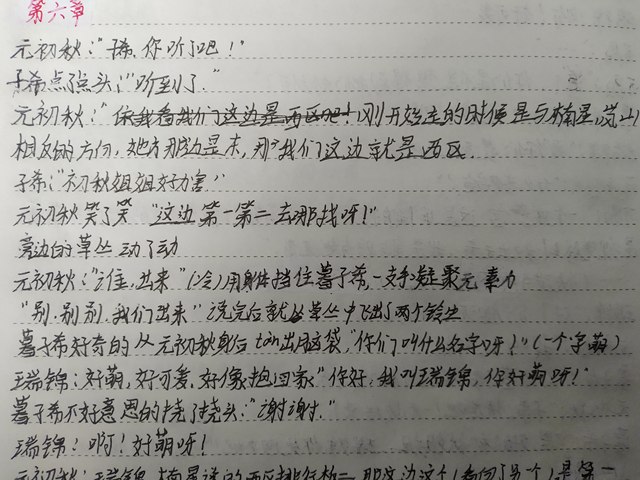 第六章
元初秋:"子希,你听了吧!"
子希点了点头:"听到了."
元初秋:"你我看我们这边是西区吧!刚开始走的时候是与楠星,岚山
相反的方向,她们那边是东,那我们这边就是西区.
子希:"初秋姐姐好厉害!"
元初秋笑了笑 "这边第一第二去哪找呀!"
旁边的草丛动了动
元初秋:"谁,出来"(冷)用身体挡住暮子希,一支手凝聚元素力
"别,别别,我们出来"说完后就从草丛中飞出了两个铃生
暮子希好奇的从元初秋身后tàn出脑袋,"你们叫什么名字呀!"(一个字萌)
瑞锦:好萌,好可爱,好像抱回家"你好,我叫瑞锦,你好萌呀!"
暮子希不好意思的挠了挠头:"谢谢."
瑞锦:啊!好萌呀!
元初秋:瑞锦,楠星说的西区排行榜二,那这边这个(看向了另一个)是第一